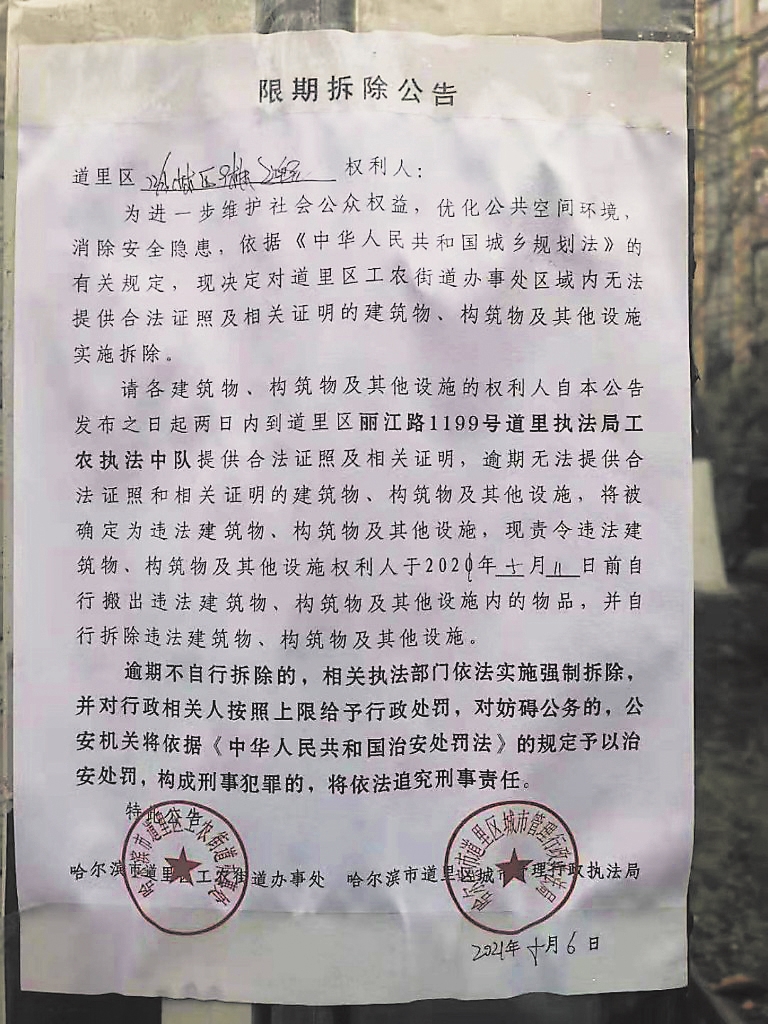 限期拆除公告
道里区 权利人：
为进一步维护社会公众权益，优化公共空间环境，
消除安全隐患，依据《中华人民共和国城乡规划法》的
有关规定，现决定对道里区工农街道办事处区域内无法
提供合法证照及相关证明的建筑物、构筑物及其他设施
实施拆除。
请各建筑物、构筑物及其他设施的权利人自本公告
发布之日起两日内到道里区丽江路1199号道里执法局工
农执法中队提供合法证照及相关证明，逾期无法提供合
法证照和相关证明的建筑物、构筑物及其他设施，将被
确定为违法建筑物、构筑物及其他设施，现责令违法建
筑物、构筑物及其他设施权利人于2021年十月11日前自
行搬出违法建筑物、构筑物及其他设施内的物品，并自
行拆除违法建筑物、构筑物及其他设施。
逾期不自行拆除的，相关执法部门依法实施强制拆除，
并对行政相关人按照上限给予行政处罚，对妨碍公务的，公
安机关将依据《中华人民共和国治安处罚法》的规定予以治
安处罚，构成刑事犯罪的，将依法追究刑事责任。
特此公告
哈尔滨市道里区工农街道办事处 哈尔滨市道里区城市管理行政执法局
哈尔滨市道里区工农街道办事处
哈尔滨市道里区城市管理行政执法局
2021年十月6日